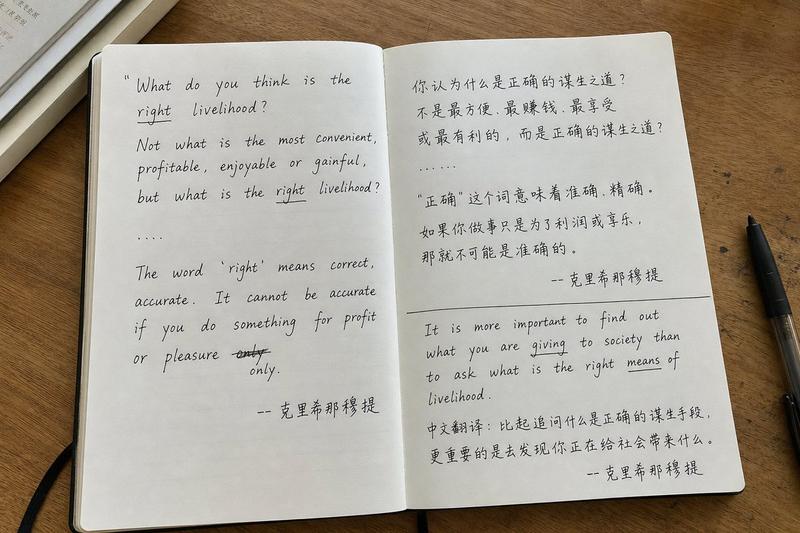 “What do you think is the
right livelihood?
Not what is the most convenient,
profitable, enjoyable or gainful,
but what is the right livelihood?
....
The word ‘right’ means correct,
accurate. It cannot be accurate
if you do something for profit
or pleasure only
only.
-- 克里希那穆提
你认为什么是正确的谋生之道？
不是最方便、最赚钱、最享受
或最有利的，而是正确的谋生之道？
......
“正确”这个词意味着准确、精确。
如果你做事只是为了利润或享乐，
那就不可能是准确的。
-- 克里希那穆提
It is more important to find out
what you are giving to society than
to ask what is the right means of
livelihood.
中文翻译：比起追问什么是正确的谋生手段，
更重要的是去发现你正在给社会带来什么。
-- 克里希那穆提